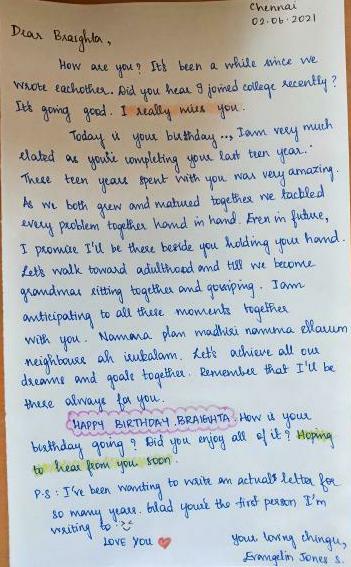 Chennai
02.06.2021
Dear Braighta,
How are you? It's been a while since we
wrote eachother. Did you hear I joined college recently?
It's going good. I really miss you.
Today is your birthday..., I am very much
elated as you're completing your last teen year..
These teen years spent with you was very amazing.
As we both grew and matured together we tackled
every problem together hand in hand. Even in future,
I promise I'll be there beside you holding your hand.
Let's walk toward adulthood and till we become
grandmas sitting together and gossiping. I am
anticipating to all these moments together
with you. Namma plan madhiri namma ellarum
neighbours ah irukalam. Let's achieve all our
dreams and goals together. Remember that I'll be
there always for you.
HAPPY BIRTHDAY BRAIGHTA. How is your
birthday going? Did you enjoy all of it? Hoping
to hear from you soon.
P.S : I've been wanting to write an actual letter for
so many years. Glad you're the first person I'm
writing to
LOVE YOU
your loving chingu,
Evangelin Jones S.